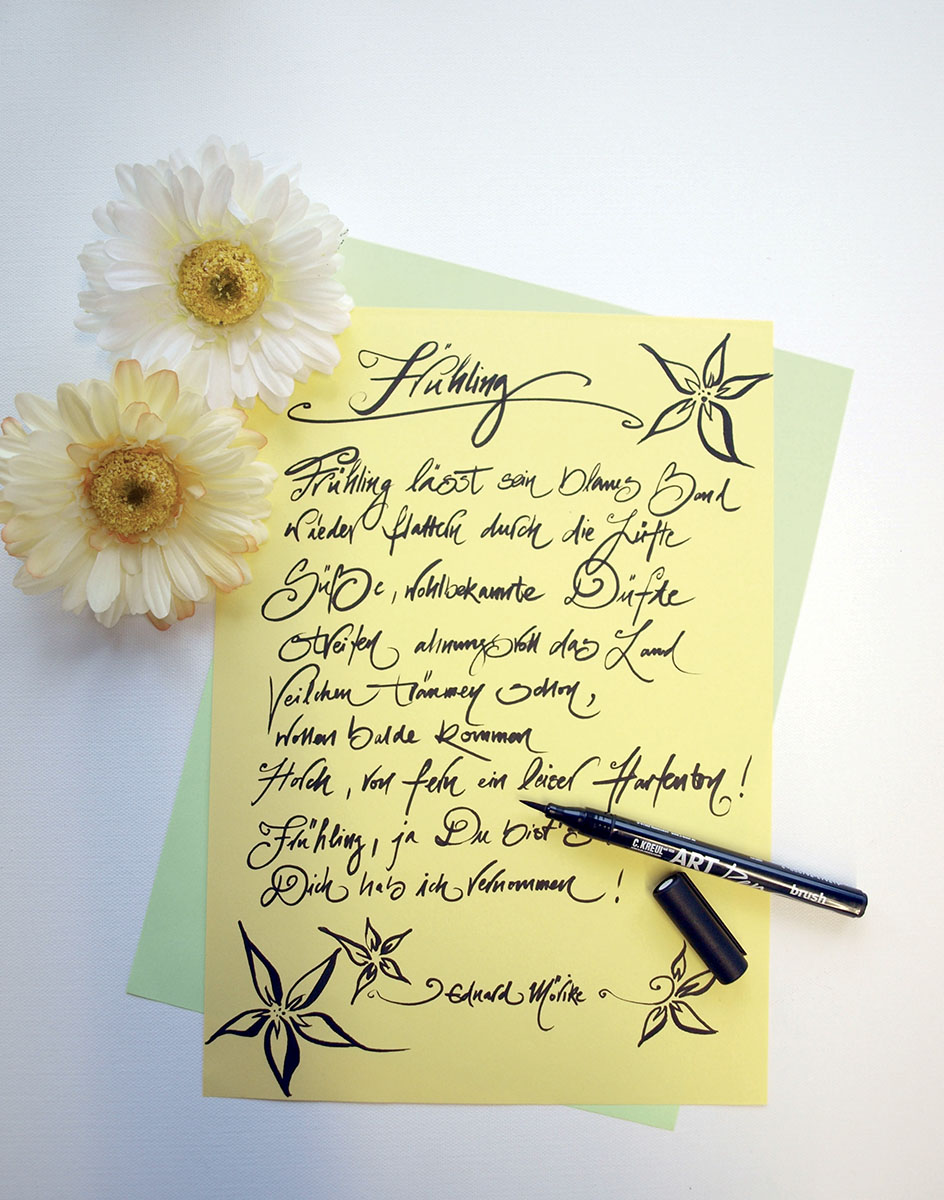 Frühling
Frühling lässt sein blaues Band
wieder flattern durch die Lüfte
Süße, wohlbekannte Düfte
streifen ahnungsvoll das Land
Veilchen träumen schon,
wollen balde kommen
Horch, von fern ein leiser Harfenton!
Frühling, ja Du bist's
Dich hab ich vernommen!
Eduard Mörike
C.KREUL ART Pen brush